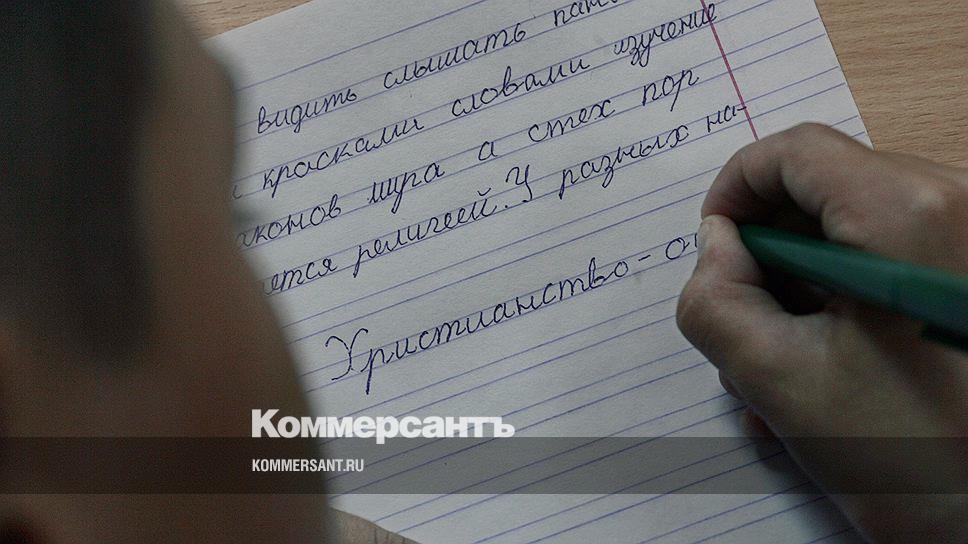 видить слышать
красками словами изучение
аконов мира а стех пор
яется религеей. У разных на-
Христианство - о
Коммерсантъ
KOMMERSANT.RU